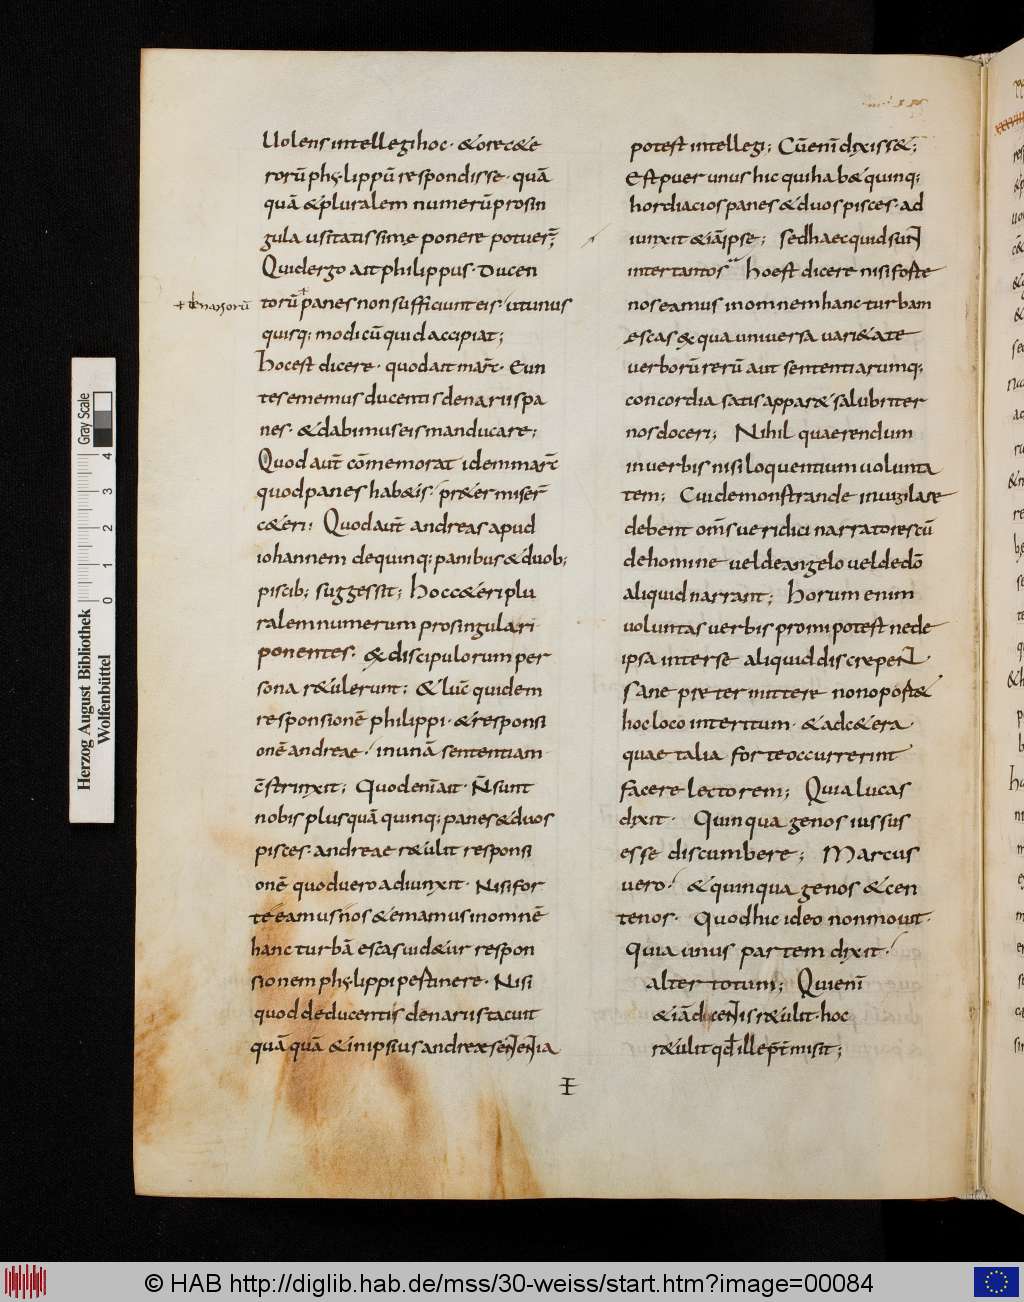 Uolens intellegi hoc· & orec&e
rorū phylippū respondisse· quā
quā & pluralem numerū pro sin
gula usitatissime ponere potuer̄;
Quid ergo ait philippus· Ducen
+ denariorū
torū + panes non sufficiunt eis· ut unus
quisq; modicū quid accipiat;
hoc est dicere· quod ait marc̄· Eun
tes ememus ducentis denariis pa
nes· & dabimus eis manducare;
Quod aut̄ cōmemorat idem marc̄
quod panes hab&is· pr&ermiser̄
c&eri· Quod aut̄ andreas apud
iohannem de quinq; panibus & duob;
piscib; suggessit; Hoc c&eri plu
ralem numerum pro singulari
ponentes· ex discipulorum per
sona r&ulerunt; & luc̄ quidem
responsionē philippi· & responsi
onē andreae· in unā sententiam
c̄strinxit; Quod enī ait· N̄ sunt
nobis plus quā quinq; panes & duos
pisces· andreae r&ulit responsi
onē quod uero adiunxit· Nisi for
te eamus nos & emamus in omnē
hanc turbā escas uid&ur respon
sionem phylippi pestinere· Nisi
quod de ducentis denariis tacuit
quā quā & in ipsius andreae sententia
potest intellegi; Cū enī dixiss&;
Est puer unus hic qui hab& quinq;
hordiacios panes & duos pisces· ad
iunxit & iā ipse; sed haec quid sunt
inter tantos hoc est dicere nisi foste
nos eamus in omnem hanc turbam
escas ex qua universa uari&ate
uerborū rerū aut sententiarumq;
concordia satis appar& salubriter
nos doceri; Nihil quaerendum
in uerbis nisi loquentium uolunta
tem; Cui demonstrande inuigilare
debent om̄s ueridici narratores cū
de homine uel de angelo uel de dō
aliquid narrant; horum enim
uoluntas uerbis promi potest ne de
ipsa inter se aliquid discrepent·
sane pretermittere non opost&
hoc loco interitum· & ad c&era·
quae talia forte occurrerint
facere lectorem; Quia lucas
dixit· Quinquagenos iussus
esse discumbere; Marcus
uero· & quinquagenos & cen
tenos· Quod hic ideo non mouit·
Quia unus partem dixit·
alter totum; Qui enī
& iā d centenis r&ulit· hoc
r&ulit qđ ille pt̄misit;
Herzog August Bibliothek
Wolfenbüttel
Gray Scale
0 1 2 3 4
© HAB http://diglib.hab.de/mss/30-weiss/start.htm?image=00084